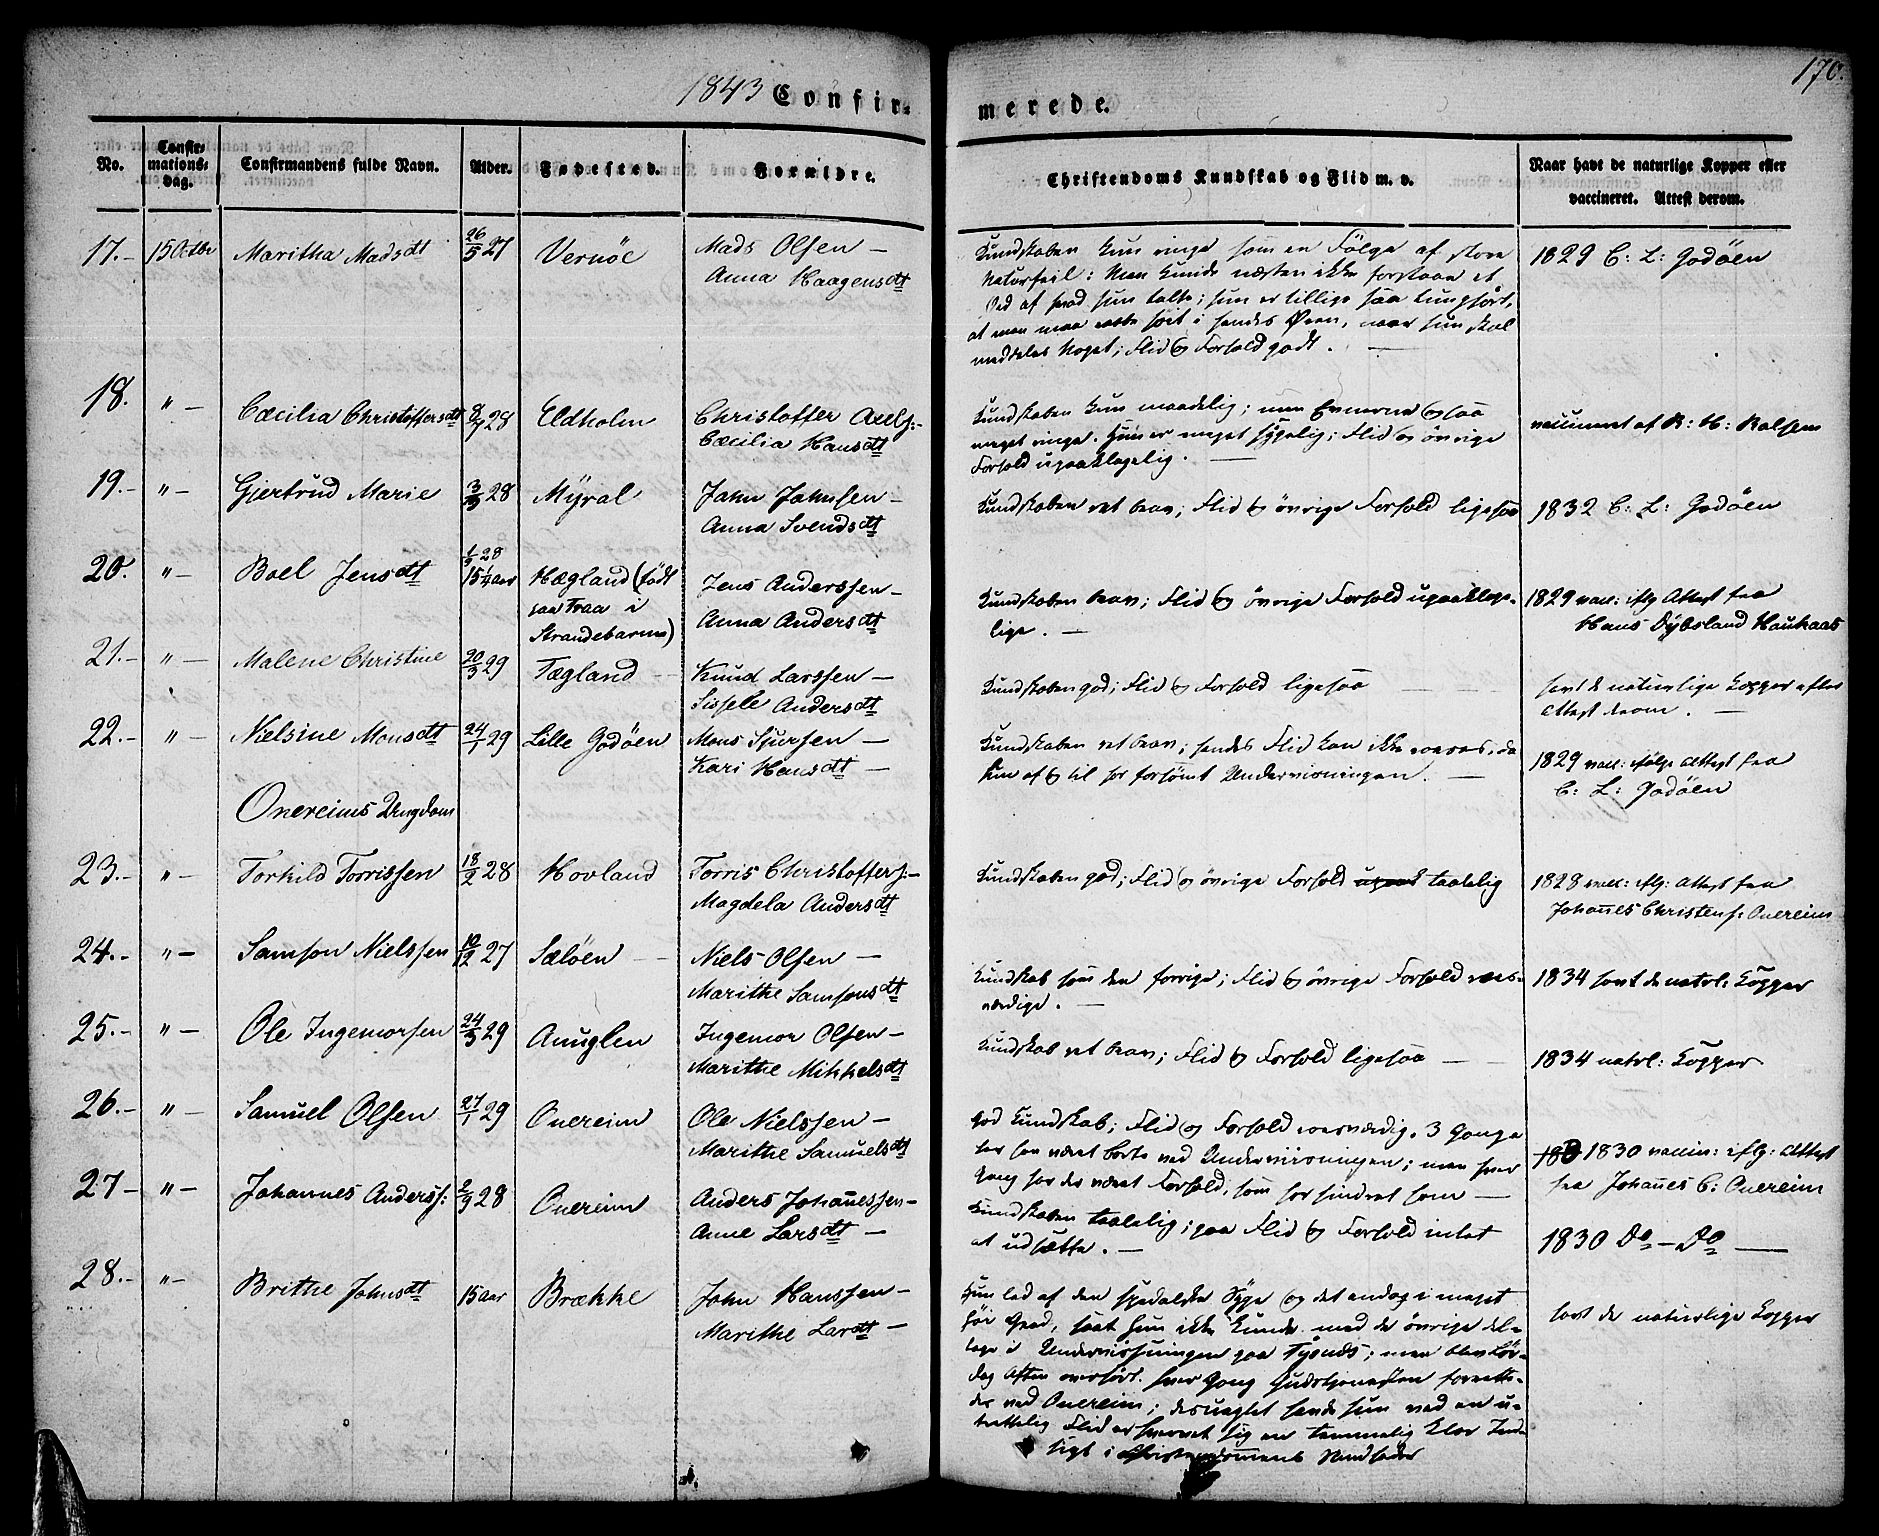 1843 Confir-
merede.
170.
No.
Confir-
mations-
dag.
Confirmandens fulde Navn.
Alder.
Fødested.
Forældre.
Christendoms Kundskab og Flid m. v.
Naar havt de naturlige Kopper eller
vaccineret. Attest derom.
17.- 15 Octbr Maritha Madsdt 26/5 27 Vernöe Mads Olsen -
Anna Haagensdt
Kundskaben kun ringe som en Fölge af store
Naturfeil: Man kunde næsten ikke forstaae et
Ord af hvad hun talte; hun er tillige saa tunghört,
at man maa raabe höit i hendes Ören, naar hun skal
meddeles Noget; Flid og Forhold godt. -
1829 C: L: Godöen
18. " - Cæcilia Christoffersdt 8/7 28 Eldholm Christoffer Axels:-
Cæcilia Hansdt
Kundskaben kun maadelig; men Evnerne ogsaa
meget ringe. Hun er meget sygelig; Flid og övrige
Forhold upaaklagelig. -
vaccineret af R: H: Rolfsen
19.- " - Gjertrud Marie 28 Myral John Johnsen -
Anna Svendsdt
Kundskaben ret brav; Flid og övrige Forhold ligesaa
1832 C: L: Godöen
20. " - Boel Jensdt 28
15 1/4 aar Hægland (födt
paa Traa i
Strandebarm) Jens Anderssen -
Anna Andersdt
Kundskaben brav; Flid og övrige Forhold upaaklage-
lige. -
1829 vacc: iflg Attest fra
Hans Dybsland Haukaas
21.- " - Malene Christine 20/3 29 Tægland - Knud Larssen -
Sissele Andersdt
Kundskaben god; Flid og Forhold ligesaa -
havt de naturlige Kopper efter
Attest derom. -
22.- " - Nielsine Monsdt 24/1 29 Lille Godöen Mons Sjursen -
Kari Hansdt -
Kundskaben ret brav; hendes Flid kan ikke roses, da
hun af og til har forsömt Undervisningen. -
1829 vacc: ifölge Attest fra
C: L: Godöen
Onereims Ungdom
23.- " - Torkild Torrissen 18/2 28 Hovland Torris Christoffers:-
Magdela Andersdt
Kundskaben god; Flid og övrige Forhold taalelig
1828 vacc: iflg: Attest fra
Johañes Christens: Onereim
24.- " - Samson Nielssen 10/12 27 Sælöen - Niels Olsen -
Marithe Samsonsdt
Kundskab som den forrige; Flid og övrige Forhold roes-
værdige. -
1834 havt de natrl: Kopper
25.- " - Ole Ingemorsen 24/3 29 Anuglen Ingemor Olsen -
Marithe Mikkelsdt
Kundskab ret brav; Flid og Forhold ligesaa -
1834 natrl: Kopper
26.- " - Samuel Olsen 27/1 29 Onereim Ole Nielssen -
Marithe Samuelsdt
God Kundskab; Flid og Forhold roesværdig. 3 Gange
har han været borte ved Undervisningen; men hver
Gang har der været Forfald, som har hindret ham -
1830 vaccin: iflg: Attest
fra Johañes C: Onereim
27- " - Johannes Anderss: 2/9 28 Onereim Anders Johañessen -
Anne Larsdt -
Kundskaben taalelig; paa Flid og Forhold intet
at udsætte. -
1830 Do - Do -
28.- " - Brithe Johnsdt 15 aar Brække John Hanssen -
Marithe Larsdt -
Hun led af den spedalske Syge og det endog i meget
höi Grad, saa at hun ikke kunde med de övrige del-
tage i Undervisningen paa Tysnæs; men blev Lör-
dag Aften overhört hver Gang Gudstjenesten forrette-
des ved Onereim; desuagtet havde hun ved en u-
trættelig Flid erhvervet sig en temmelig klar Ind-
sigt i Christendommens Sandheder
havt de naturlige Kopper